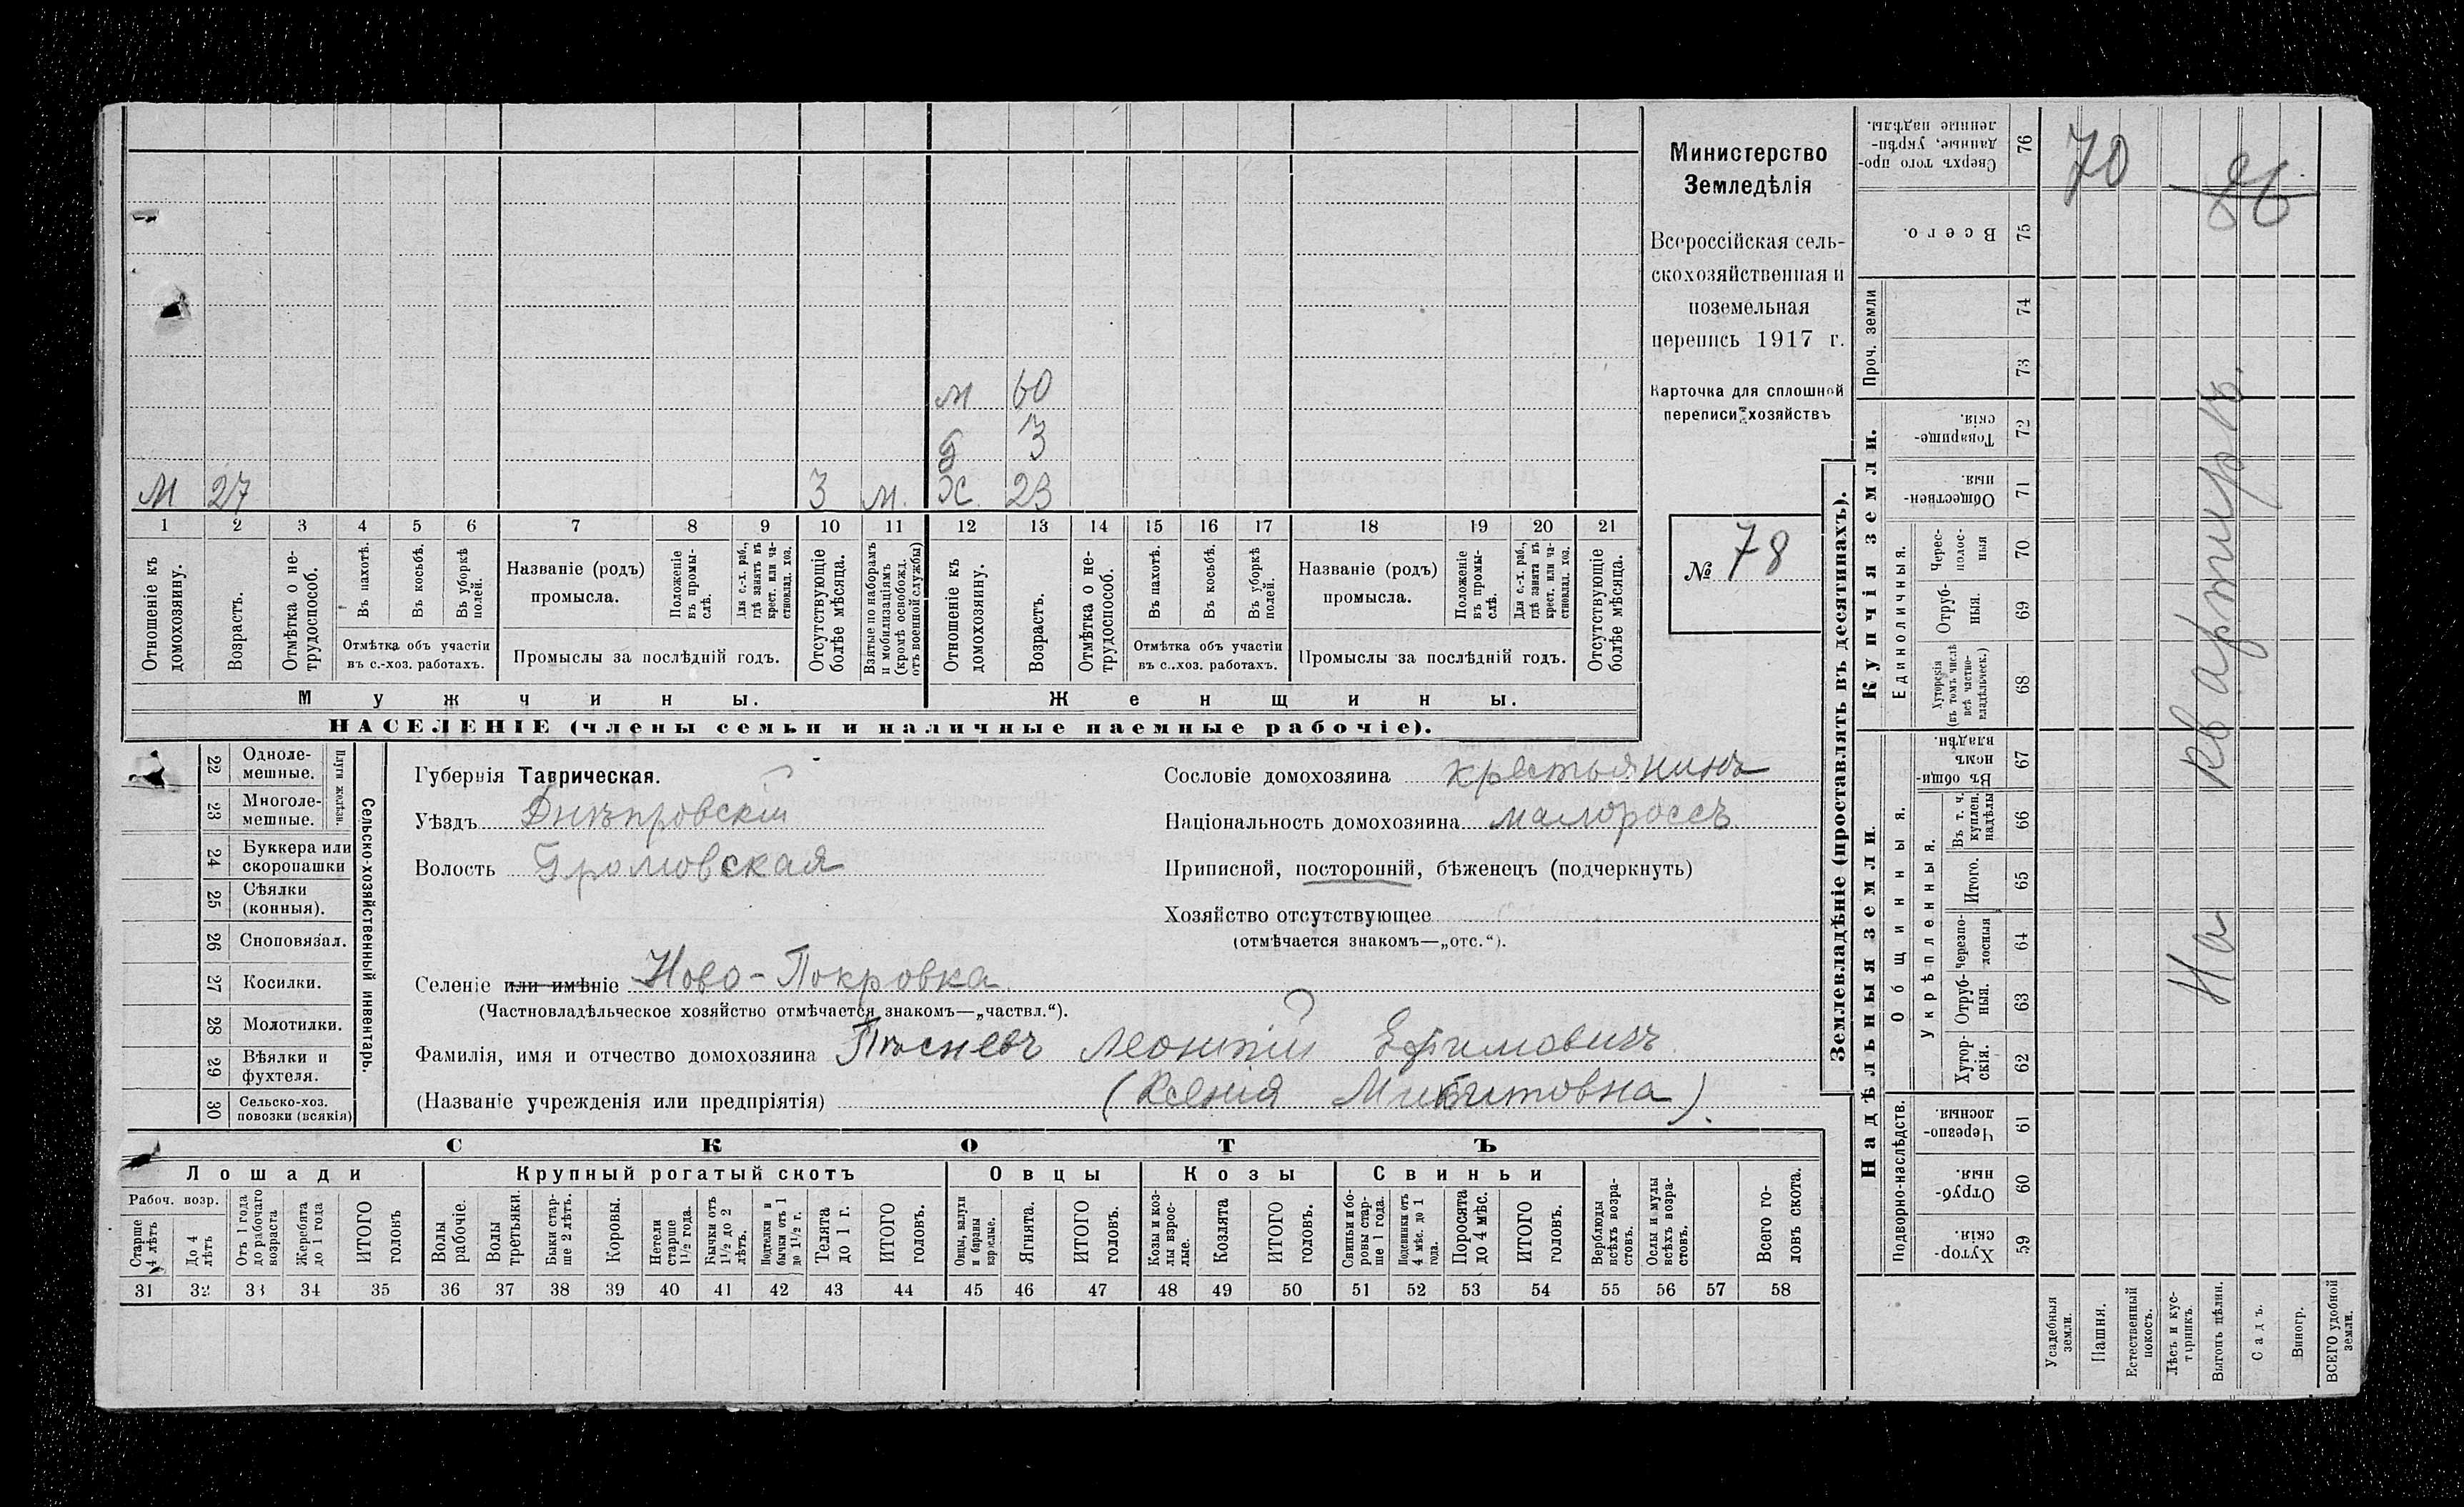 м 60
д 3
М 27 3 м. ж. 23
1 2 3 4 5 6 7 8 9 10 11 12 13 14 15 16 17 18 19 20 21
Отношеніе къ домохозяину.
Возрастъ.
Отмѣтка о не-трудоспособ.
Въ пахотѣ.
Въ косьбѣ.
Въ уборкѣ полей.
Отмѣтка объ участіи
въ с.-хоз. работахъ.
Названіе (родъ)
промысла.
Положеніе въ промы-слѣ.
Для с.-х. раб., гдѣ занятъ въ крест. или ча-стновлад. хоз.
Промыслы за послѣдній годъ.
Отсутствующіе болѣе мѣсяца.
Взятые по наборамъ и мобилизаціямъ (кромѣ освобожд. отъ военной службы)
Отношеніе къ домохозяину.
Возрастъ.
Отмѣтка о не-трудоспособ.
Въ пахотѣ.
Въ косьбѣ.
Въ уборкѣ полей.
Отмѣтка объ участіи
въ с.-хоз. работахъ.
Названіе (родъ)
промысла.
Положеніе въ промы-слѣ.
Для с.-х. раб., гдѣ занята въ крест. или ча-стновлад. хоз.
Промыслы за послѣдній годъ.
Отсутствующіе болѣе мѣсяца.
Мужчины. Женщины.
НАСЕЛЕНІЕ (члены семьи и наличные наемные рабочіе).
Министерство
Земледѣлія
Всероссійская сель-
скохозяйственная и
поземельная
перепись 1917 г.
Карточка для сплошной
переписи хозяйствъ
№ 78
Сельско-хозяйственный инвентарь.
Плуги желѣзн.
22 Одноле-мешные.
23 Многоле-мешные.
24 Буккера или скоропашки
25 Сѣялки (конныя).
26 Сноповязал.
27 Косилки.
28 Молотилки.
29 Вѣялки и фухтеля.
30 Сельско-хоз. повозки (всякія)
Губернія Таврическая.
Уѣздъ Днѣпровскій
Волость Громовская
Сословіе домохозяина крестьянинъ
Національность домохозяина малороссъ
Приписной, посторонній, бѣженецъ (подчеркнуть)
Хозяйство отсутствующее
(отмѣчается знакомъ—„отс.“).
Селеніе или имѣніе Ново-Покровка
(Частновладѣльческое хозяйство отмѣчается знакомъ—„частвл.“).
Фамилія, имя и отчество домохозяина Леонтій Ефимовичъ
(Названіе учрежденія или предпріятія) (Ксенія
СКОТЪ
Лошади Крупный рогатый скотъ Овцы Козы Свиньи
Рабоч. возр.
Старше 4 лѣтъ
До 4 лѣтъ
Отъ 1 года до рабочаго возраста
Жеребята до 1 года
ИТОГО головъ
Волы рабочіе.
Волы третьяки.
Быки стар-ше 2 лѣтъ.
Коровы.
Нетели старше 1½ года.
Бычки отъ 1½ до 2 лѣтъ.
Подтелки и бычки отъ 1 до 1½ г.
Телята до 1 г.
ИТОГО головъ.
Овцы, валухи и бараны взрослые.
Ягнята.
ИТОГО головъ.
Козы и коз-лы взрос-лые.
Козлята
ИТОГО головъ.
Свиньи и бо-ровы стар-ше 1 года.
Подсвинки отъ 4 мѣс. до 1 года.
Поросята до 4 мѣс.
ИТОГО головъ.
Верблюды всѣхъ возра-стовъ.
Ослы и мулы всѣхъ возра-стовъ.
Всего го-ловъ скота.
31 32 33 34 35 36 37 38 39 40 41 42 43 44 45 46 47 48 49 50 51 52 53 54 55 56 57 58
Землевладѣніе (проставлять въ десятинахъ).
Надѣльныя земли.
Купчія земли.
Проч. земли
Подворно-наслѣдств.
Общинныя.
Укрѣпленныя.
Единоличныя.
Хутор-скія. 59
Отруб-ныя. 60
Черезпо-лосныя. 61
Хутор-скія. 62
Отруб-ныя. 63
Черезпо-лосныя 64
Итого. 65
Въ т. ч. куплен. надѣлы 66
Въ общин-номъ владѣн. 67
Хуторскія (въ томъ числѣ всѣ частно-владѣльческ.) 68
Отруб-ныя. 69
Черес-полос-ныя 70
Обществен-ныя. 71
Товарище-скія. 72
73
74
Всего. 75
Сверхъ того про-данные, укрѣп-ленные надѣлы. 76
Усадебныя земли.
Пашня.
Естественный покосъ.
Лѣсъ и кус-тарникъ.
Выгонъ цѣлин.
Садъ.
Виногр.
ВСЕГО удобной земли.
70
На квартирѣ.